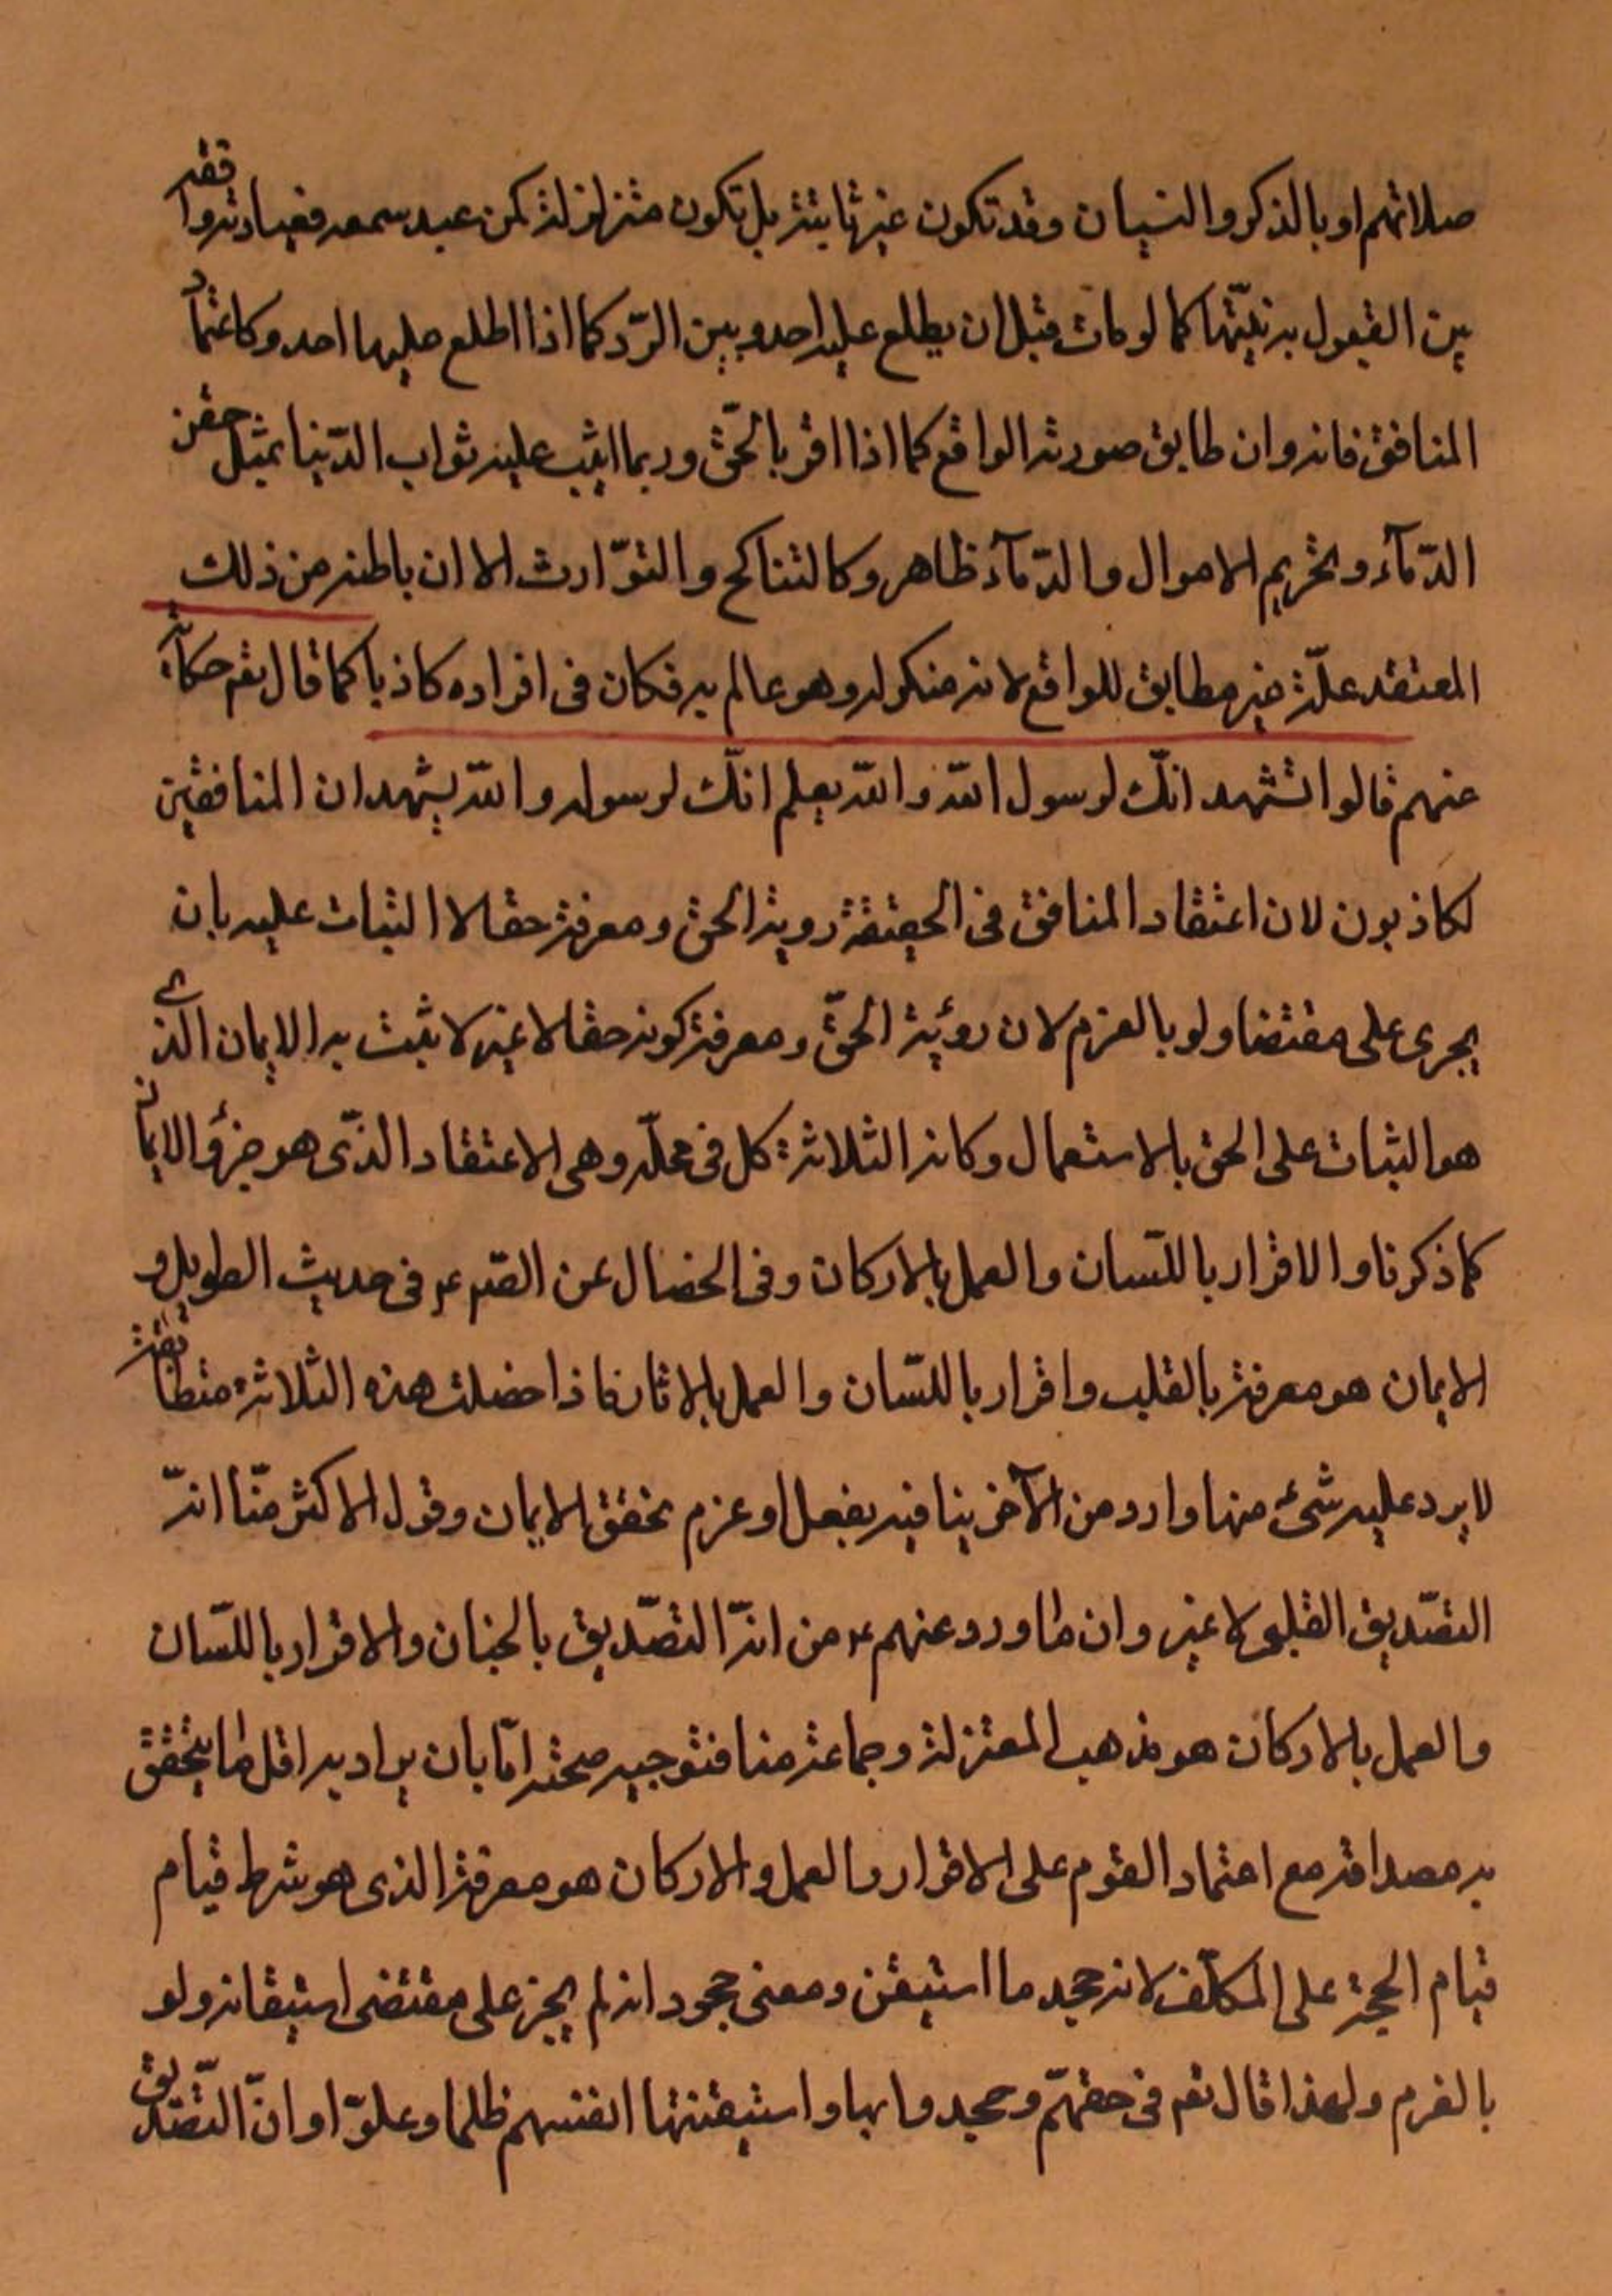 صلاتهم او بالذكر والنسيان وقد تكون غير ثابتة بل تكون متزلزلة كمن عبد سمعه فعبادته واقفة
بين القبول بدنيتها كما لو مات قبل ان يطلع عليه احد وبين الرّد كما اذا اطلع عليها احد وكاعتماد
المنافق فانه وان طابق صورته الواقع كما اذا اقر بالحقّ وربما اثيب عليه ثواب الدّنيا بمثل حقن
الدّمآء وتحريم الاموال والدّمآء ظاهر وكالتناكح والتوّارث الا ان باطنه من ذلك
المعتقد علّة غير مطابق للواقع لانه منكر له وهو عالم به فكان فى اقراده كاذبا كما قال تعم حكاية
عنهم قالوا نشهد انّك لرسول الله والله يعلم انّك لرسوله والله يشهد ان المنافقين
لكاذبون لان اعتقاد المنافق فى الحقيقة روية الحق ومعرفة حقا لا الثبات عليه بان
يجرى على مقتضا ولو بالعزم لان رؤية الحقّ ومعرفة كونه حقا لا غير لا يثبت به الايمان الذى
هو الثبات على الحق بالاستعمال وكانه الثلاثة كل فى محلّه وهى الاعتقاد الذّى هو جزؤ الايمان
كما ذكرنا والاقرار باللسّان والعمل بالاركان وفى الخصال عن الصّم ع فى حديث الطويل و
الايمان هو معرفة بالقلب واقرار باللسّان والعمل بالاثان فاذا حضلت هذه الثلاثة متطابقة
لا يرد عليه شئ منها وارد من الآخر ينافيه بفعل او عزم تحقق الايمان وقول الاكثر منّا انّه
التصّديق القلبى لا غير وان ما ورد عنهم ع من انّه التصّديق بالجنان والاقرار باللسّان
والعمل بالاركان هو مذهب المعتزلة وجماعة منا فتوجيه صحته امّا بان يراد به اقل ما يتحقق
به مصداقه مع اعتماد القوم على الاقرار والعمل والاركان هو معرفة الذى هو شرط قيام
قيام الحجة على المكلّف لانه جحد ما استيقن ومعنى جحود انه لم يجز على مقتضى استيقانه ولو
بالغرم ولهذا قال تعم فى حقهمّ وجحدوا بها واستيقنتها انفسهم ظلما وعلوّا وانّ التصّديق